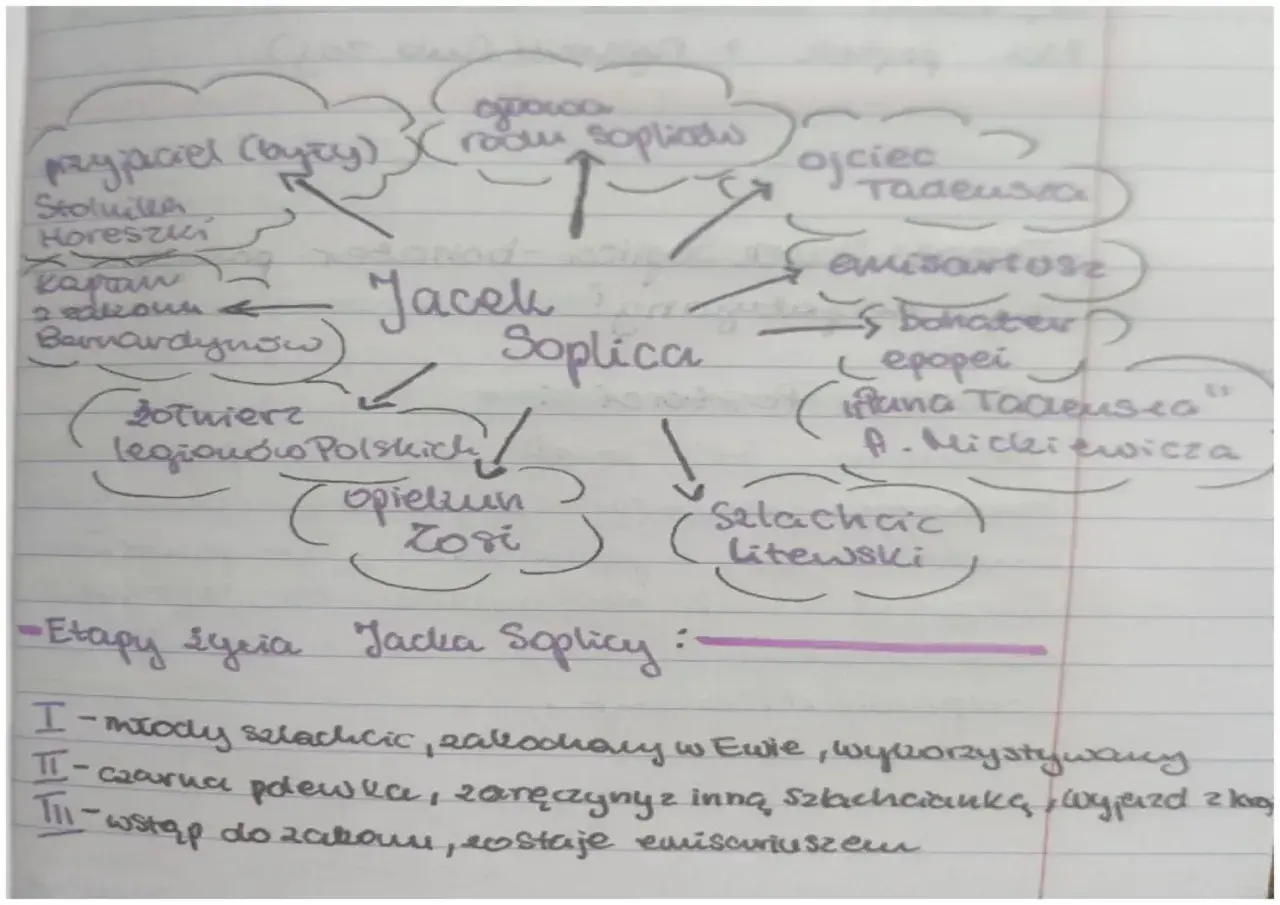 przyjaciel (były)
Stolnika
Horeszki
głowa
rodu Sopliców
ojciec
Tadeusza
emisariusz
bohater
epopei
"Pana Tadeusza"
A. Mickiewicza
Jacek
Soplica
kapłan
z zakonu
Bernardynów
żołnierz
legionów Polskich
opiekun
Zosi
szlachcic
litewski
- Etapy życia Jacka Soplicy :
I - młody szlachcic, zakochany w Ewie, wykorzystywany
II - czarna polewka, zaręczyny z inną szlachcianką, wyjazd z
III - wstąp do zakonu, zostaje emisariuszem